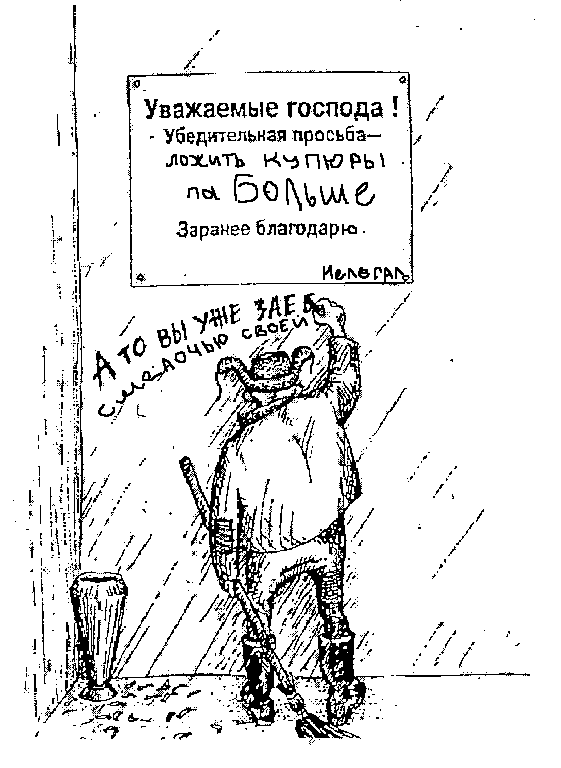 Уважаемые господа !
- Убедительная просьба—
ложить купюры
па Больше
Заранее благодарю.
Нелегал
А то вы уже заеб
с мелочью своей